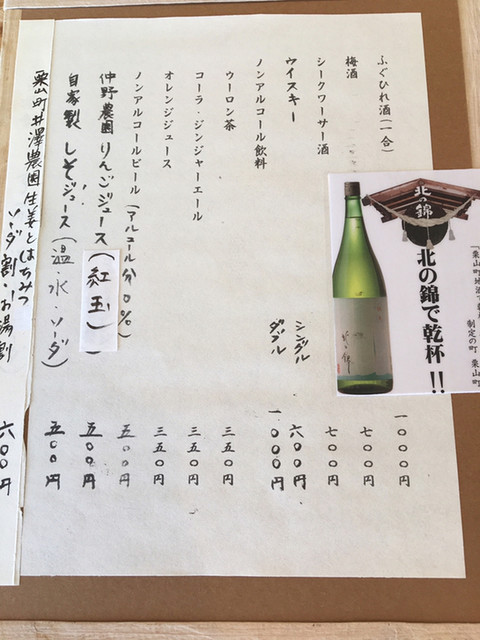 ふぐひれ酒(一合) 一〇〇〇円
梅酒 七〇〇円
シークワーサー酒 七〇〇円
ウイスキー シングル 六〇〇円
ダブル 一〇〇〇円
ノンアルコール飲料
ウーロン茶 三五〇円
コーラ・ジンジャーエール 三五〇円
オレンジジュース 三五〇円
ノンアルコールビール(アルコール分0%) 五〇〇円
仲野農園りんごジュース(紅玉) 五〇〇円
自家製しそジュース(温・水・ソーダ) 五〇〇円
栗山町井澤農園生姜とはちみつ
ソーダ割・お湯割 六〇〇円
北の錦
北の錦で乾杯!!
制定の町 栗山町